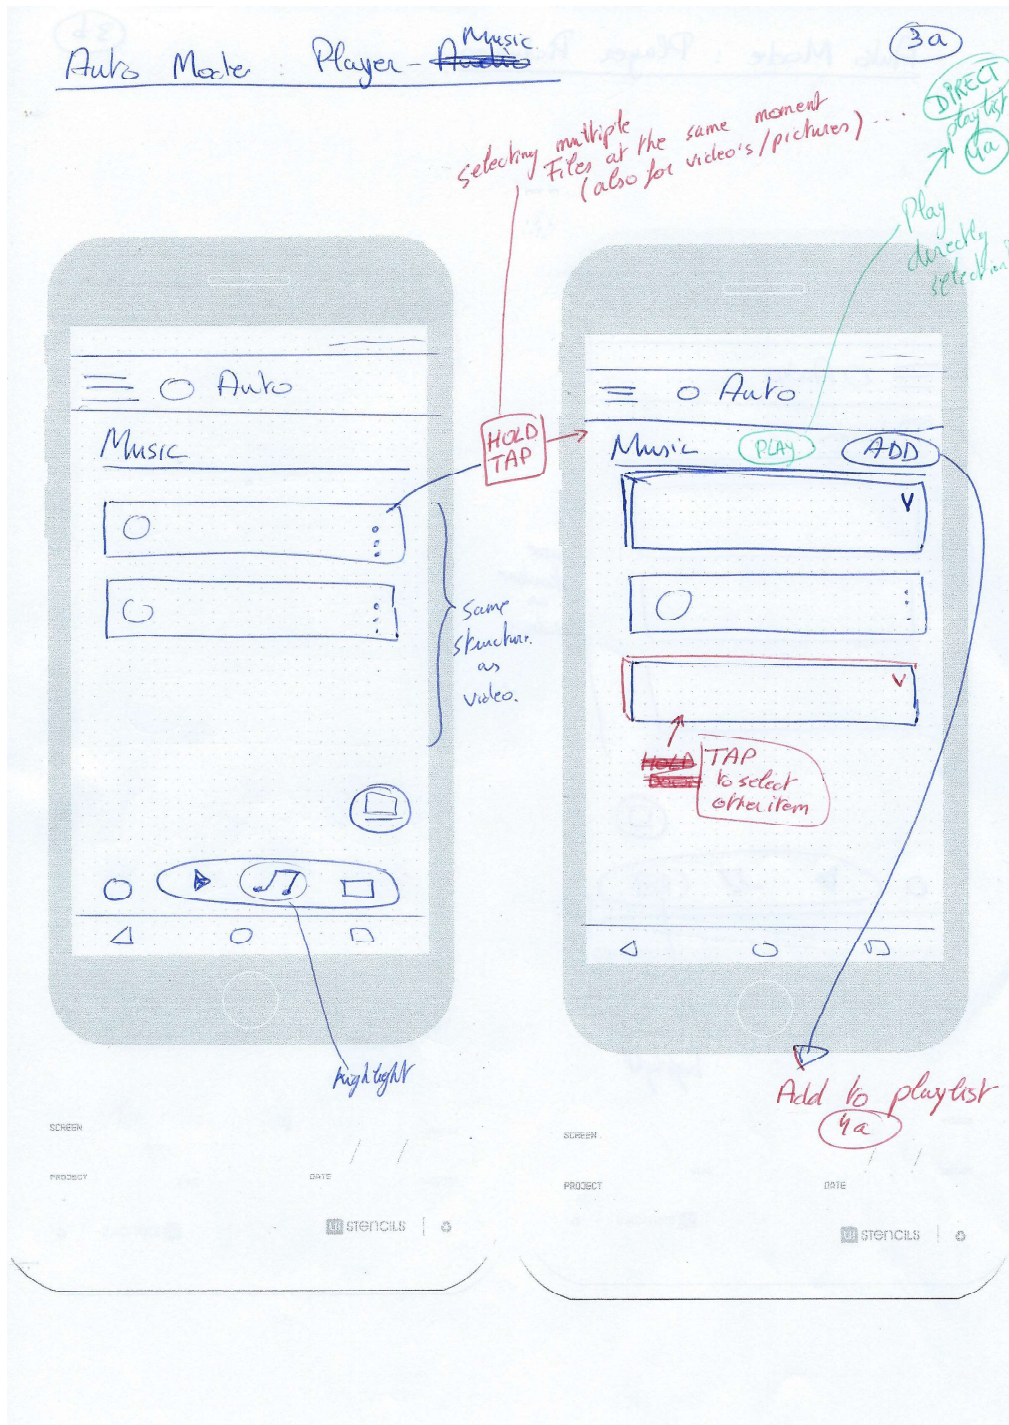 Auto Mode : Player - Audio Music
3a
selecting multiple
Files at the same moment
(also for video's/pictures) ...
DIRECT
playlist
4a
Play
directly
selection
Auto
Music
HOLD
TAP
same
structure
as
video.
highlight
Auto
Music
PLAY
ADD
V
V
HOLD
DOWN
TAP
to select
other item
Add to playlist
4a
SCREEN
/ /
PROJECT
DATE
UI STENCILS
SCREEN
/ /
PROJECT
DATE
UI STENCILS